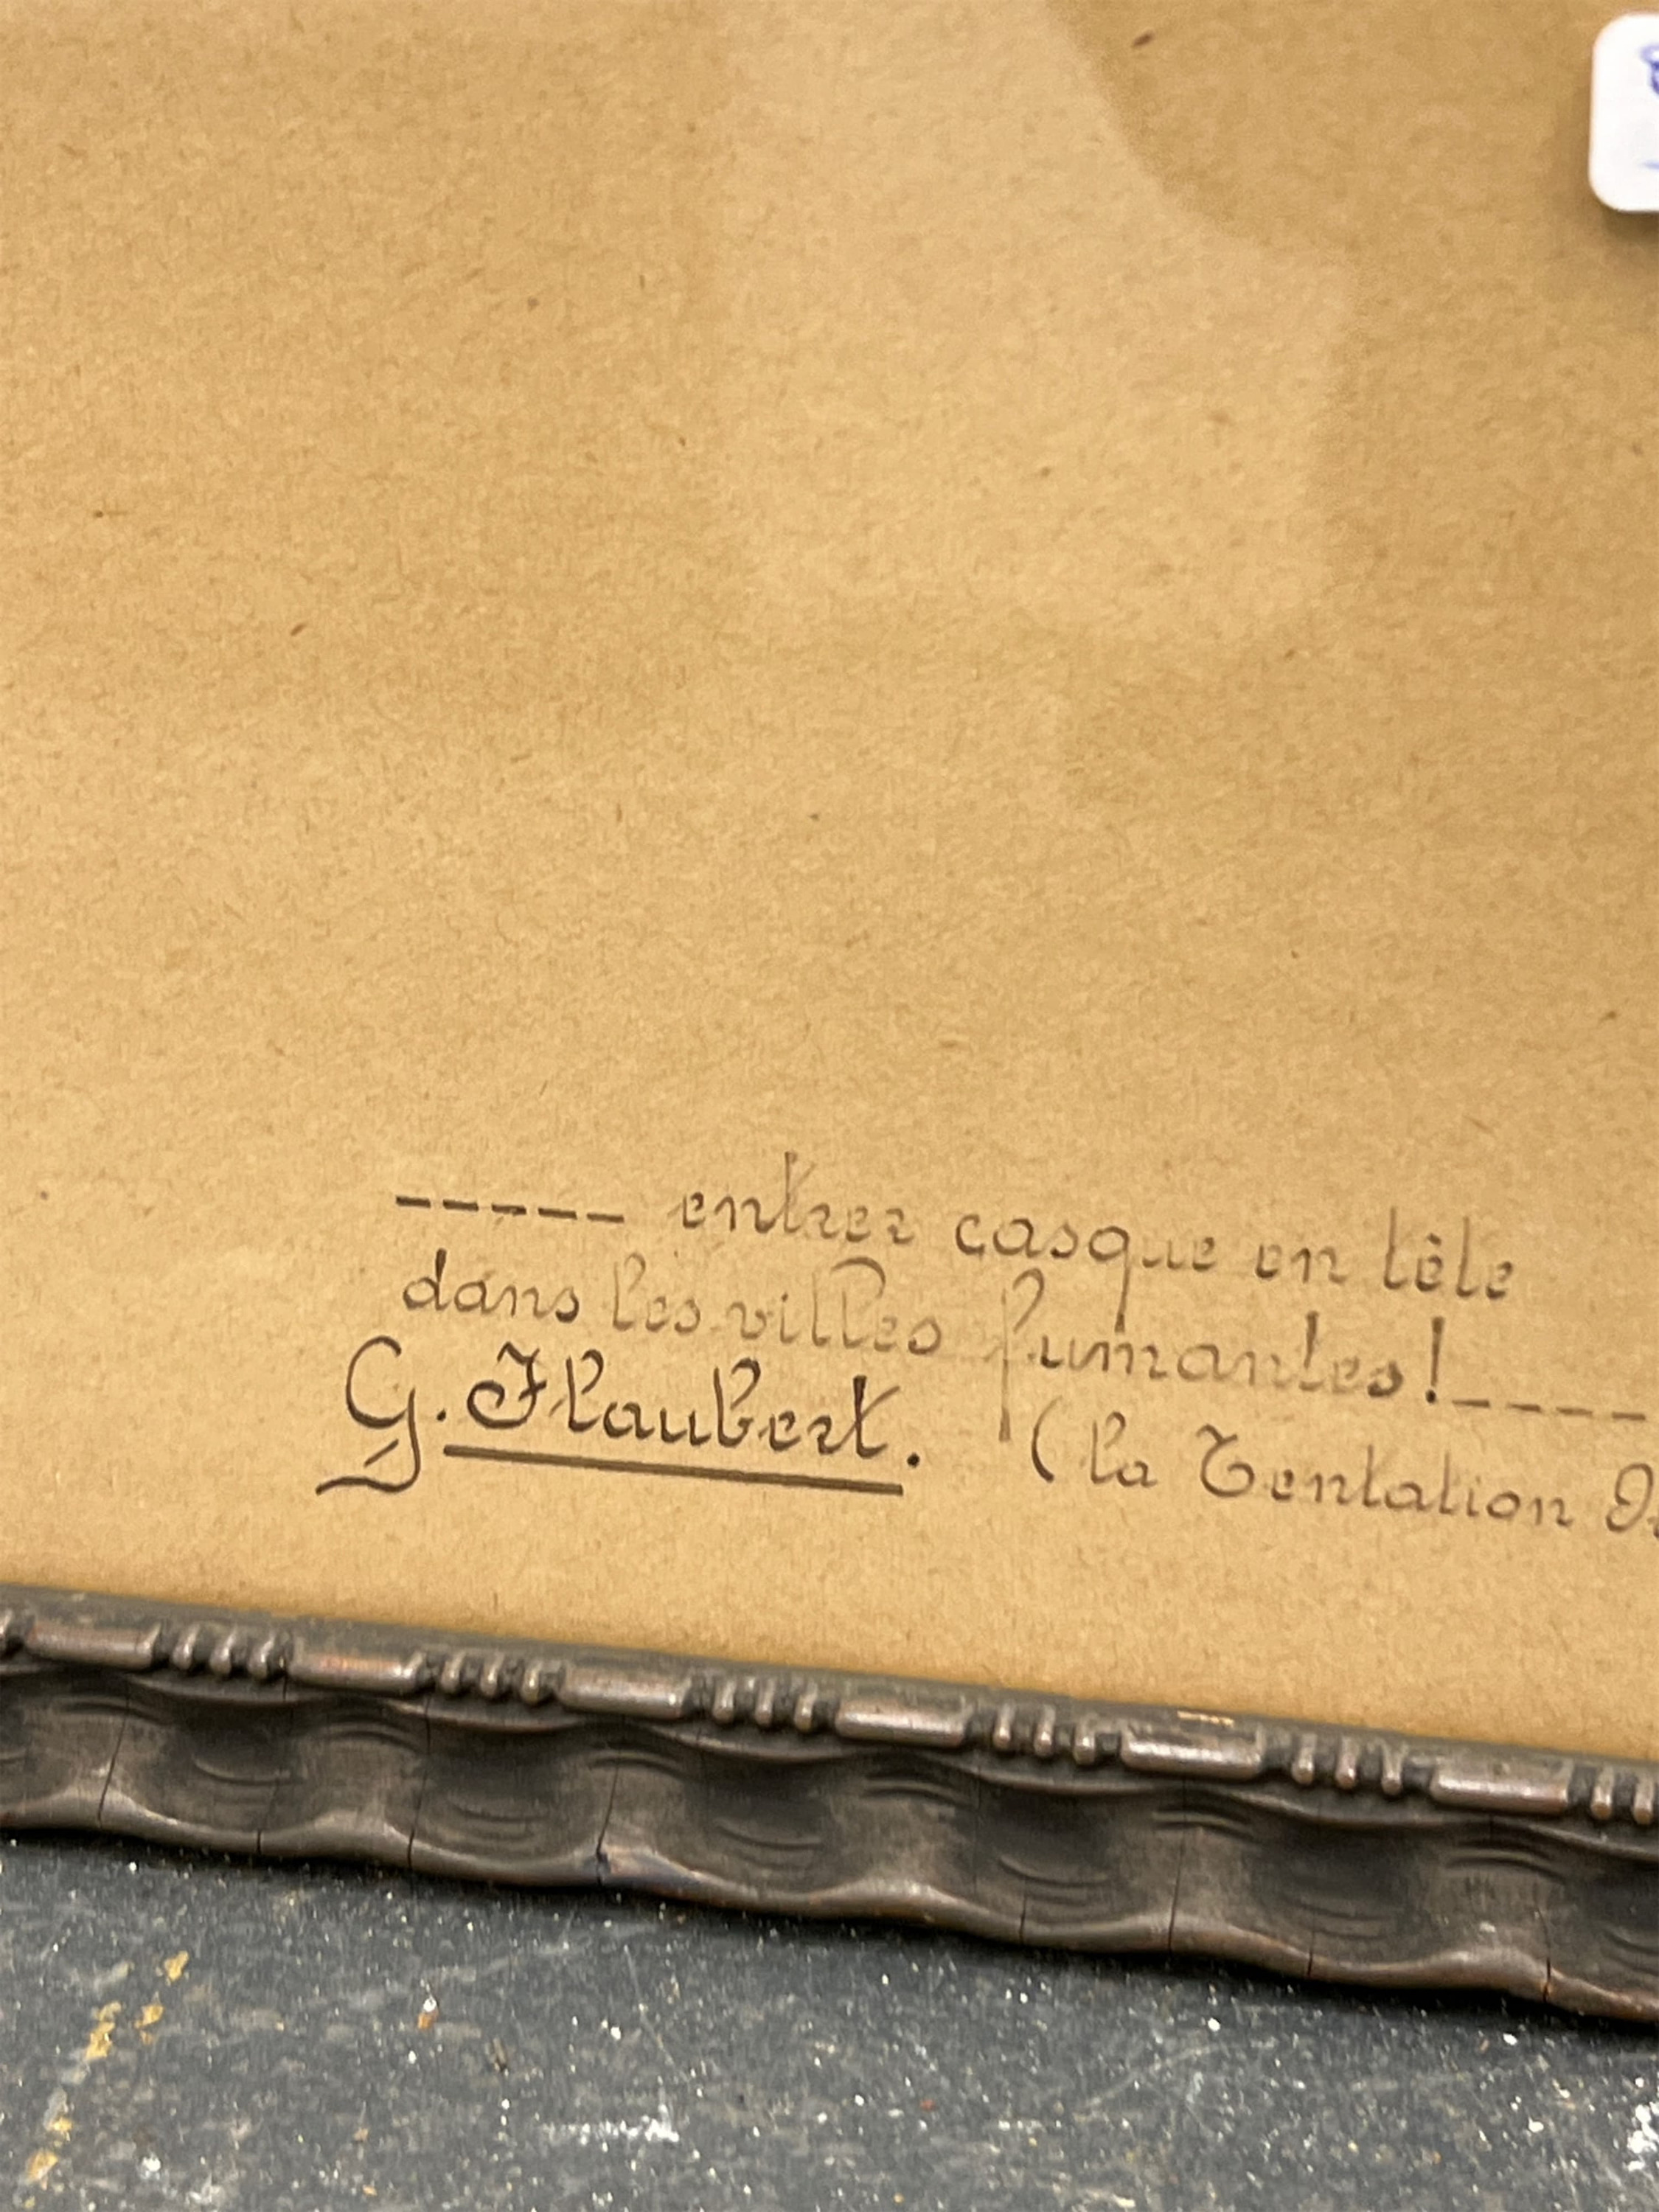 ----- entrer casque en tête
dans les villes fumantes!----
G. Flaubert. (la Tentation De